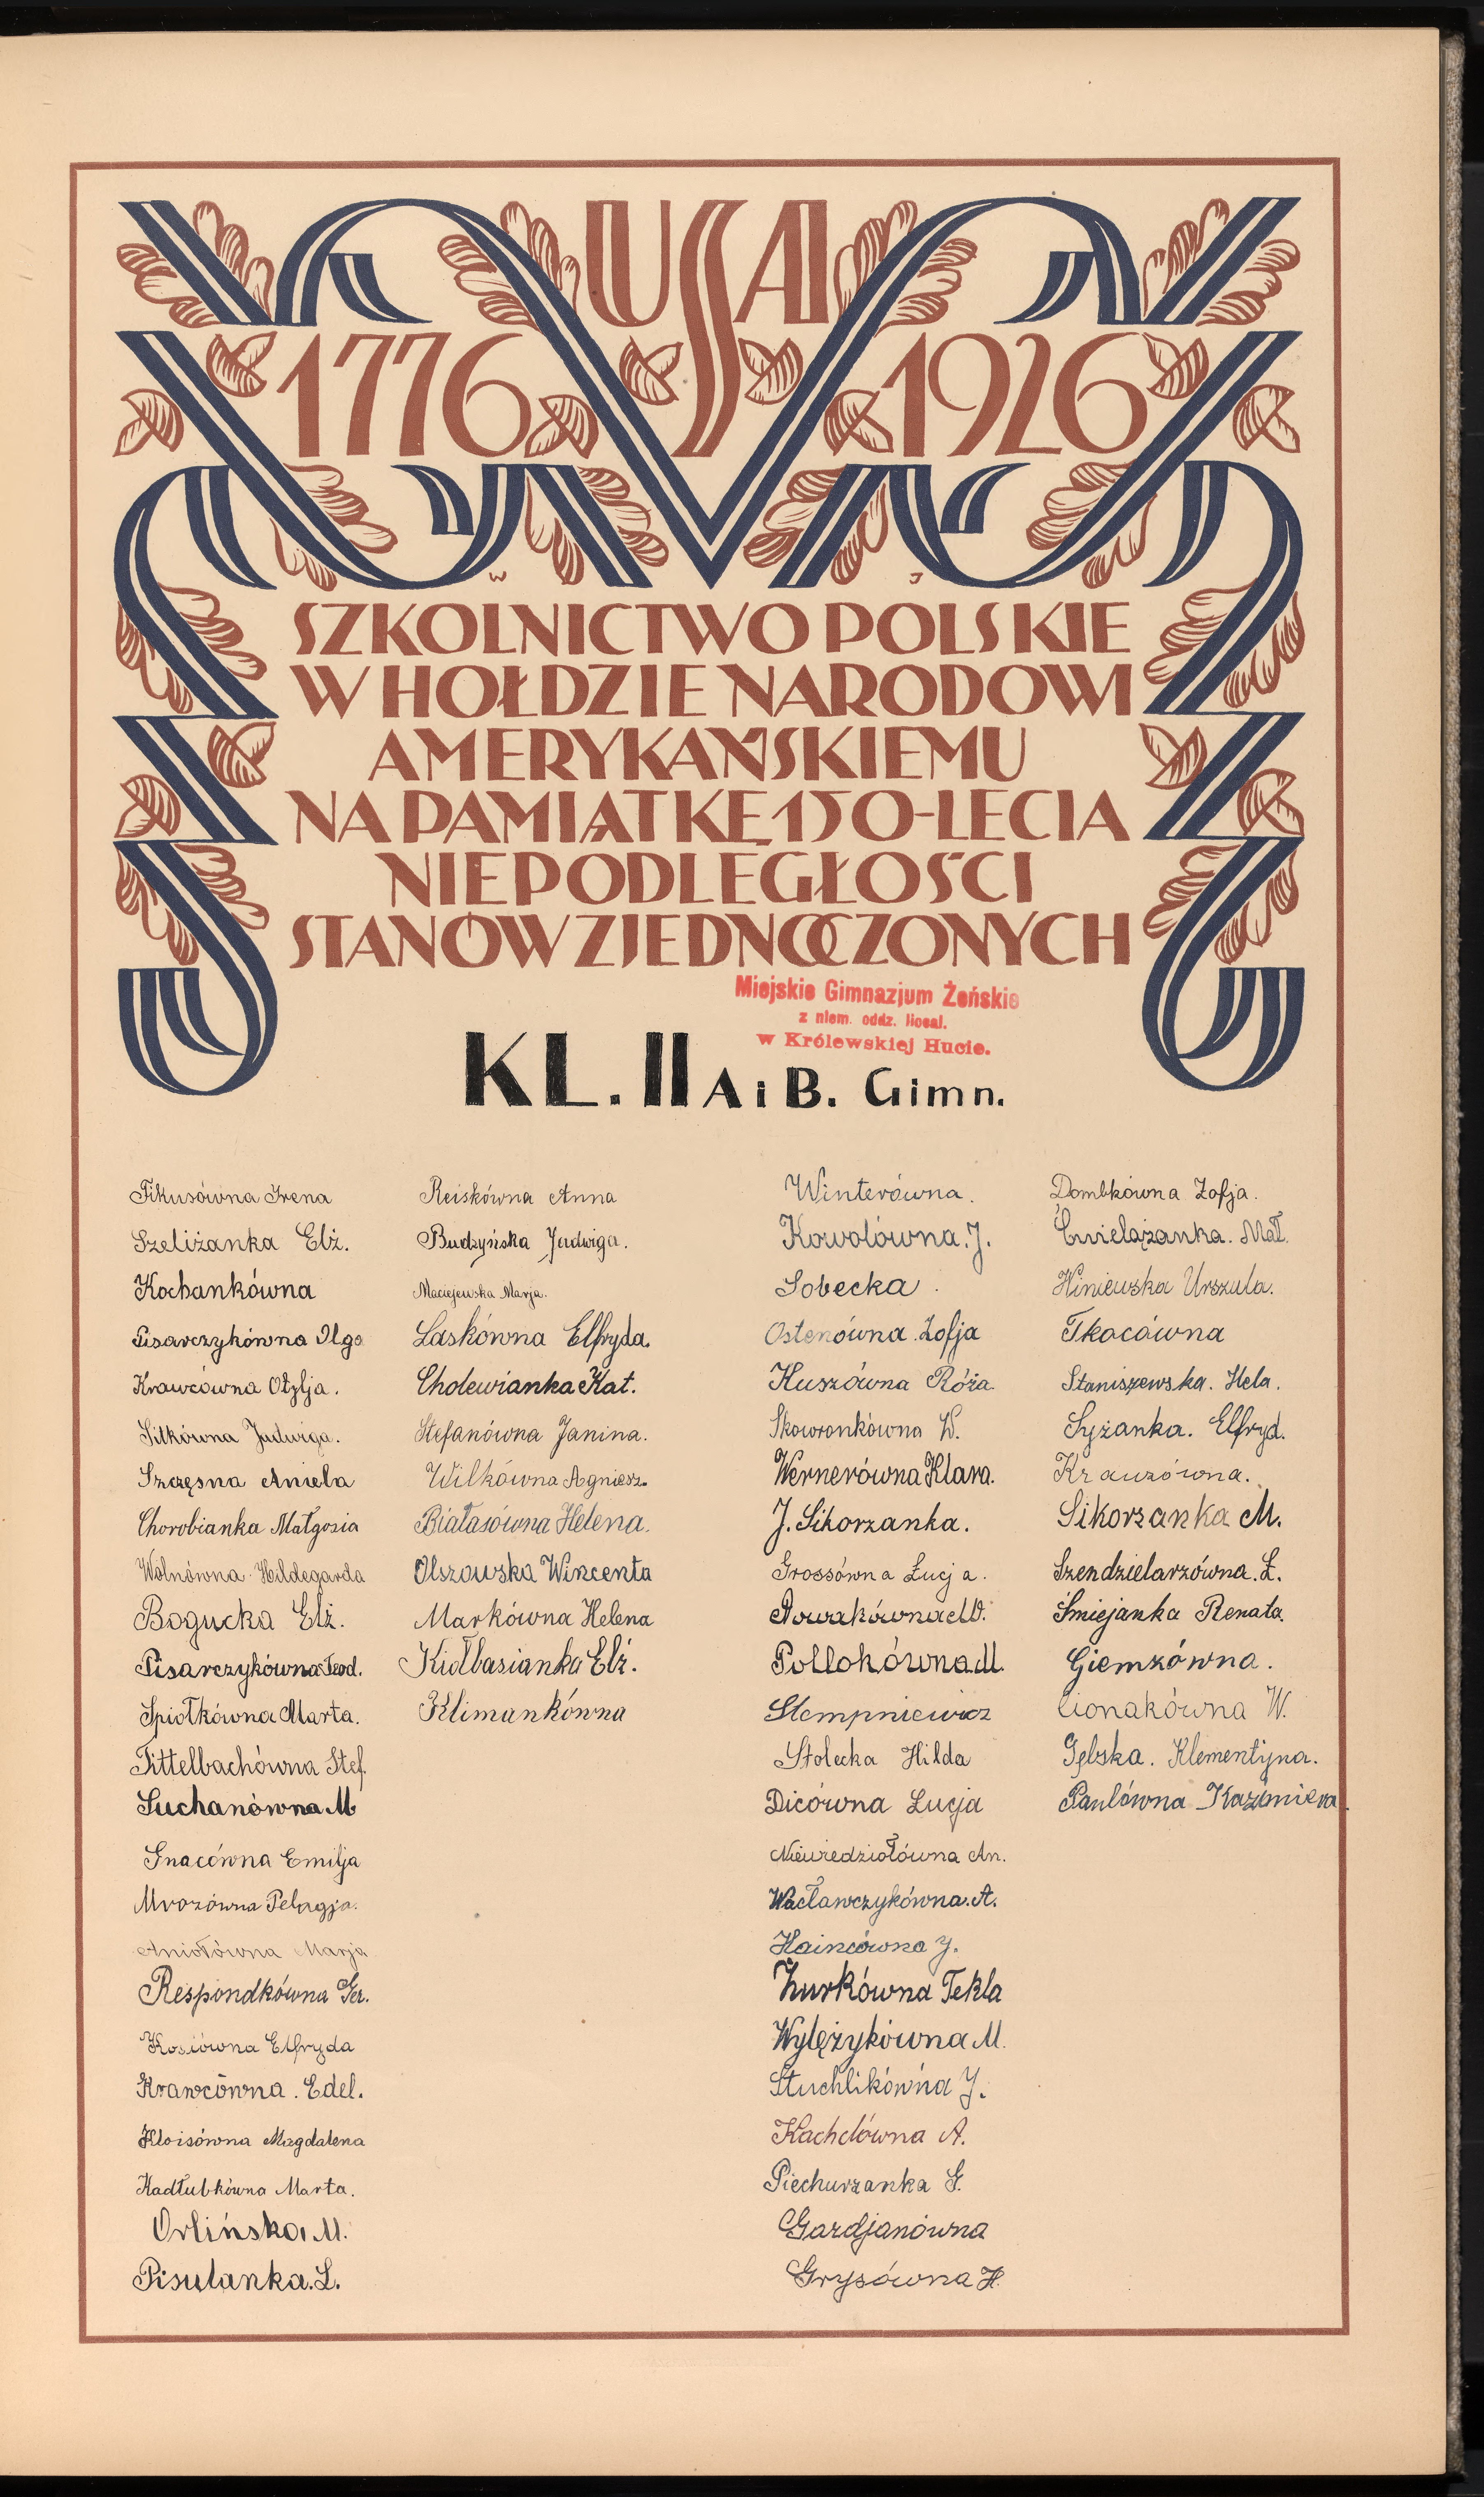 USA
1776 1926
W J
SZKOLNICTWO POLSKIE
W HOŁDZIE NARODOWI
AMERYKAŃSKIEMU
NA PAMIĄTKĘ 150-LECIA
NIEPODLEGŁOŚCI
STANÓW ZJEDNOCZONYCH
Miejskie Gimnazjum Żeńskie
z niem. oddz. liceal.
w Królewskiej Hucie.
KL. II A i B. Gimn.
Fikusówna Irena
Szeliżanka Elż.
Kochankówna
Pisarczykówna Olga
Krawcówna Otylja.
Sitkówna Jadwiga.
Szczęsna Aniela
Chorobianka Małgosia
Wolnówna Hildegarda
Bogucka Elż.
Pisarczykówna Teod.
Spiołkówna Marta.
Tittelbachówna Stef.
Suchanówna M
Gnacówna Emilja
Mrozówna Pelagja.
Aniołówna Marja
Respondkówna Ger.
Kosiówna Elfryda
Krawcówna. Edel.
Kloisówna Magdalena
Kadłubkówna Marta.
Orlińska M.
Pisulanka. L.
Reiskówna Anna
Budzyńska Jadwiga.
Maciejewska Marja.
Laskówna Elfryda.
Cholewianka Kat.
Stefanówna Janina.
Wilkówna Agniesz.
Białasówna Helena.
Olszowska Wincenta
Markówna Helena
Kiołbasianka Elż.
Klimankówna
Winterówna.
Kowolówna. J.
Sobecka.
Ostenówna Zofja
Kuszówna Róża
Skowronkówna W.
Wernerówna Klara.
J. Sikorzanka.
Grossówna Łucja.
Nowakówna M.
Pollokówna M.
Slempniewicz
Stolecka Hilda
Dicówna Łucja
Niewiedziołówna An.
Wacławczykówna. A.
Haincówna J.
Żurkówna Tekla
Wylężykówna M.
Stuchlikówna J.
Kachelówna A.
Piechurzanka G.
Gardjanówna
Grysówna H.
Dombkówna Zofja.
Ćwielążanka. Mał.
Winiewska Urszula.
Tkocówna
Staniszewska. Hela.
Syżanka. Elfryd.
Krauzówna.
Sikorzanka M.
Szendzielarzówna. Ł.
Śmiejanka Renata
Giemzówna.
Cionakówna W.
Gębska. Klementyna.
Paulówna Kazimiera.